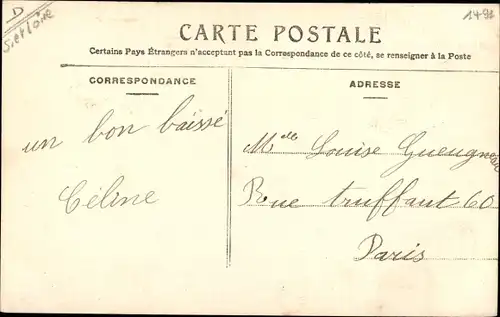 D
1493
CARTE POSTALE
Certains Pays Étrangers n'acceptent pas la Correspondance de ce côté, se renseigner à la Poste
CORRESPONDANCE
ADRESSE
un bon baissé
Céline
Mdlle Louise
Rue truffaut 60
Paris